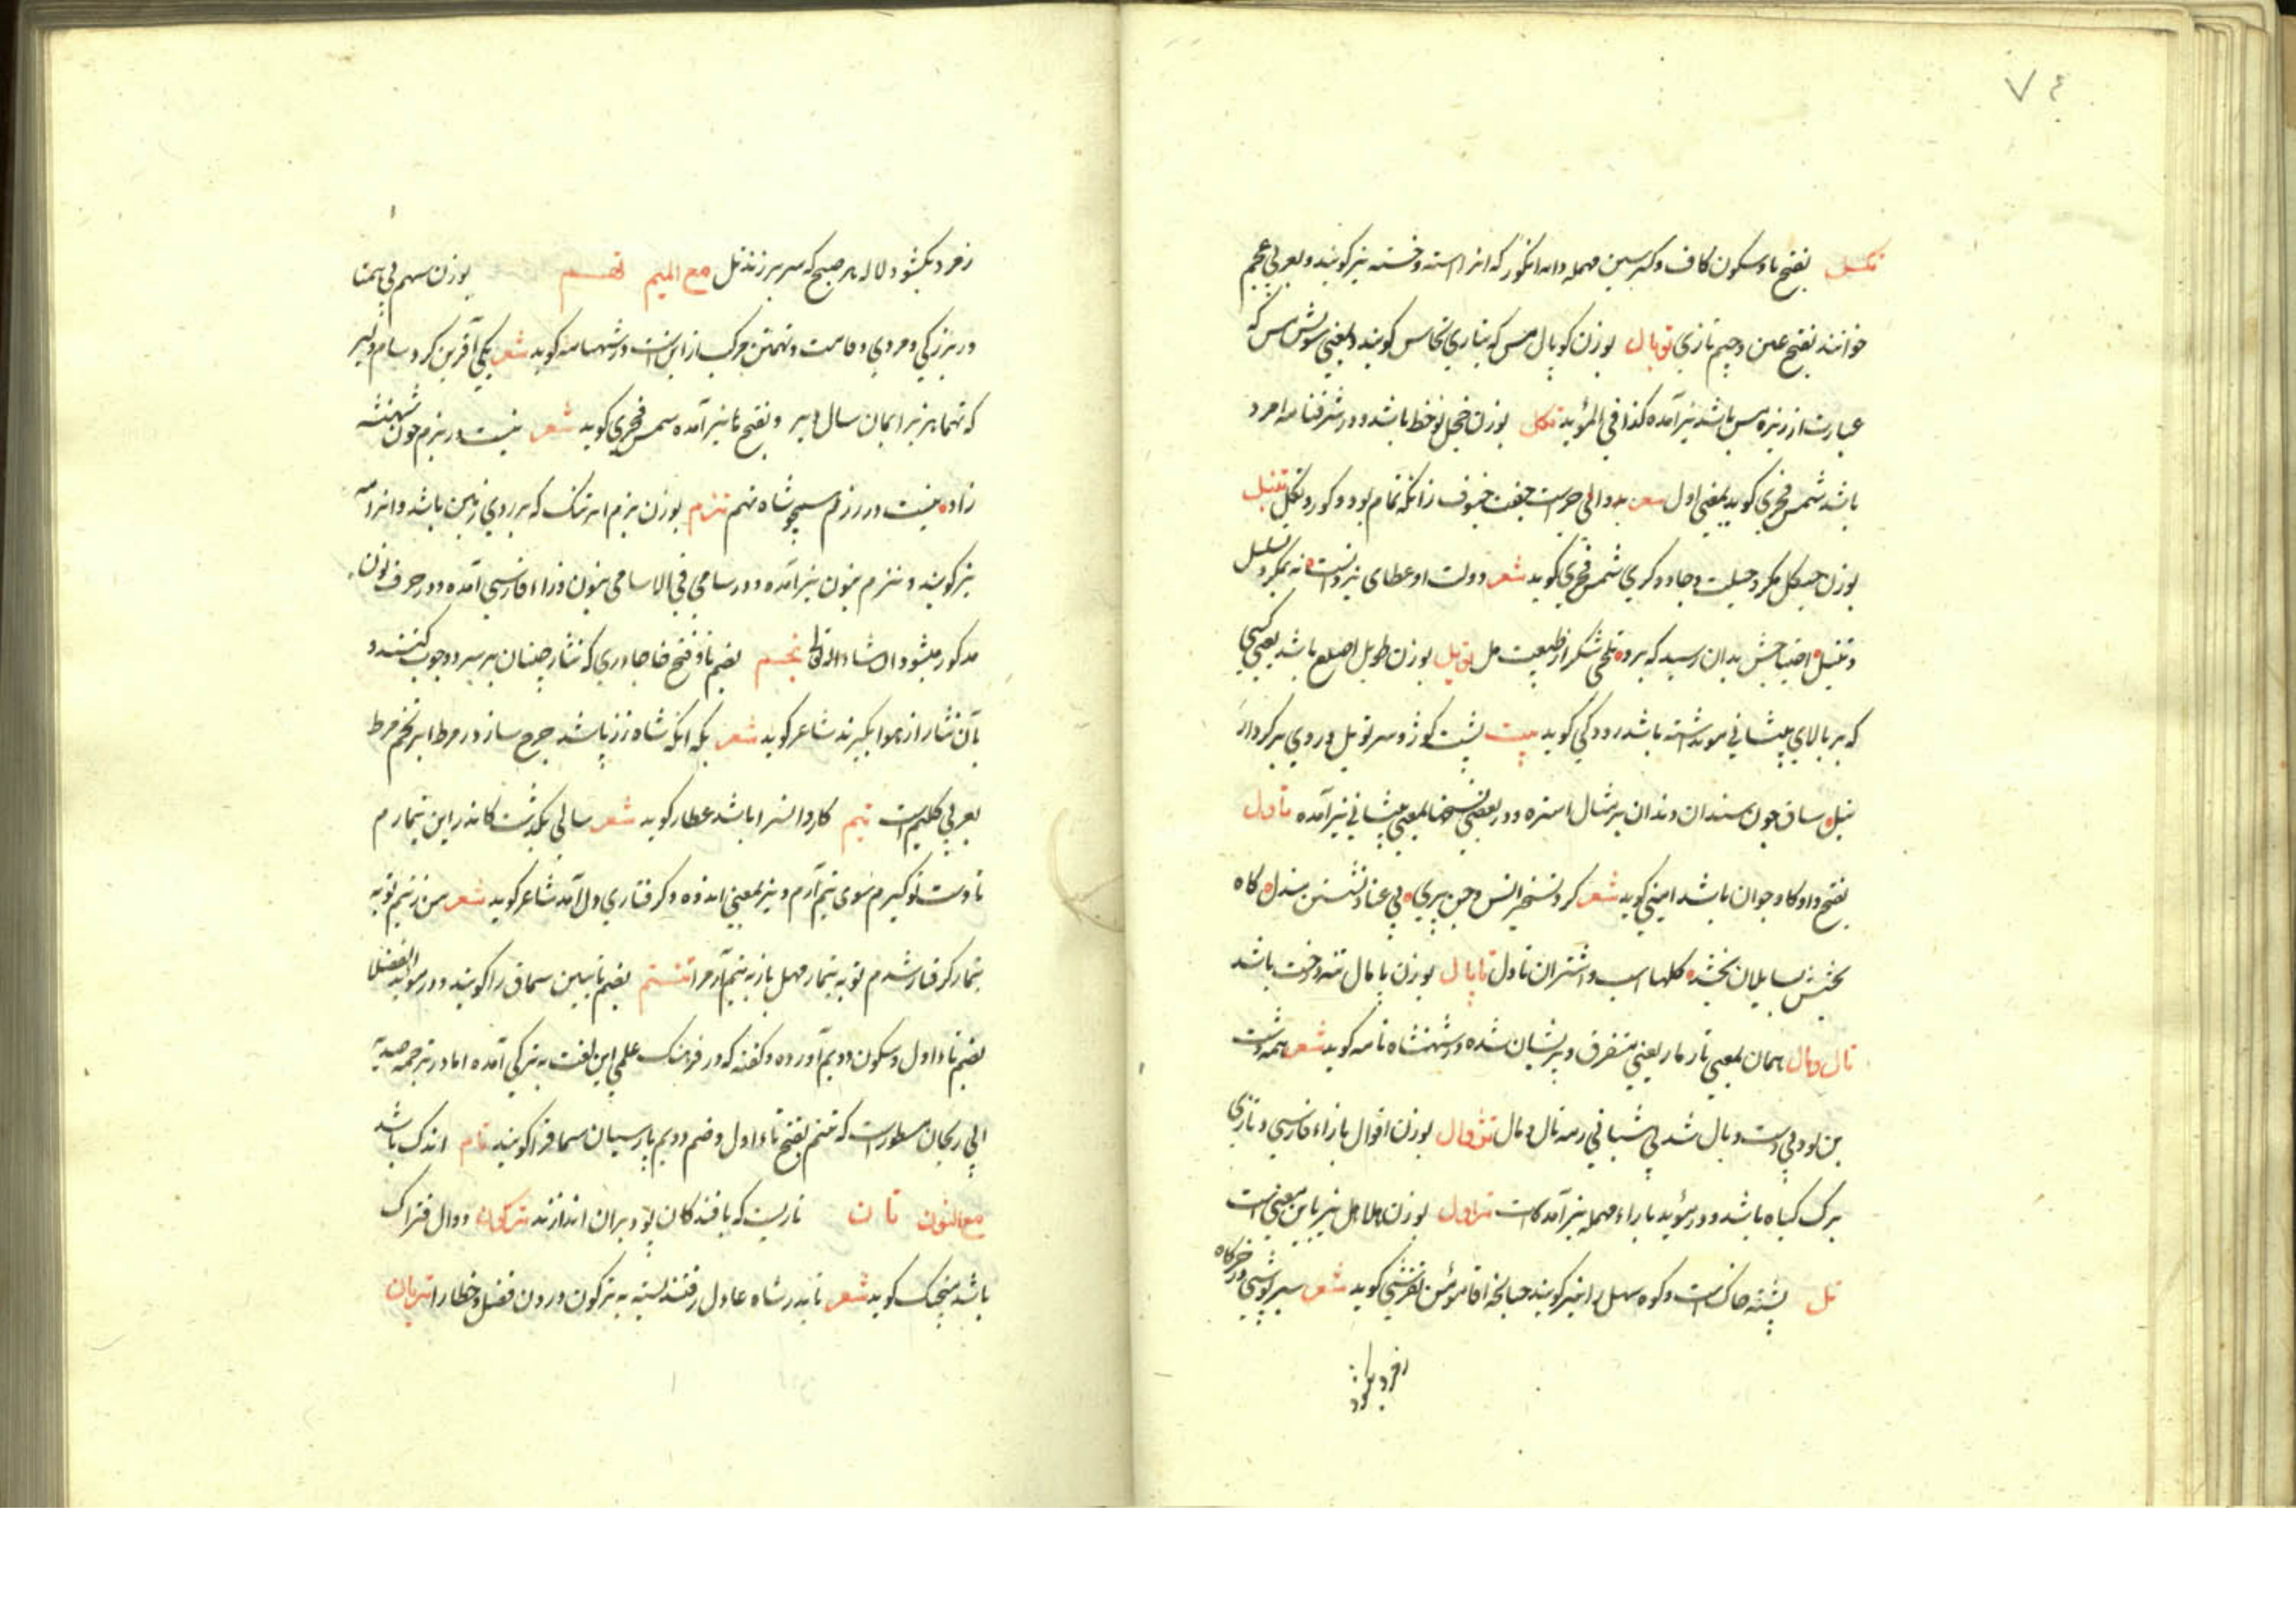 ٧٤
تکسل بفتح تا و سکون کاف و کسر سین مهمله دانه انگور که انرا استه و خسته نیز گویند و بعربی عجم
خوانند بفتح عین و جیم تازی توبال بوزن کوپال مس که بتازی نحاس گویند و بمعنی سونش مس که
عبارت از ریزه مس باشد نیز آمده کذا فی المؤید تکل بوزن خجل نوخط باشد و در شرفنامه امرد
باشد شمس فخری گوید بمعنی اول شعر جفت خسوف زانکه تمام بود و کور و تکل تنبل
بوزن مکر و حیلت و جادوگری شمس فخری گوید شعر دولت او عطای یزدانست نه بمکر و
و تنبل احتیاجش بدان رسید که برد تلخی شکر از طبیعت مل تویل بوزن طویل اصلع باشد یعنی کسی
که بر بالای پیشانی مو نداشته باشد رودکی گوید بیت پشت کوژ و سر تویل و روی بر کردار
نیل ساق چون سندان و دندان بر مثال استره و در بعضی نسخها بمعنی پیشانی نیز آمده تاول
بفتح واو گاو جوان باشد امینی گوید شعر کرد تسخیر انس و جن و پری بی عنا گاه
بخشش بسایلان بخشد گلهای اسب و اشتران تاول تاپال بوزن پامال تنه درخت باشد
تال و مال همان بمعنی تار مار یعنی متفرق و پریشان شده در شهنشاه نامه گوید شعر همه دشت
بن بود و بی دست و بال شد بی شبانی رمه تال و مال تژوال بوزن اقوال بازاء فارسی و تازی
برگ گیاه باشد و در مؤید باراء مهمله نیز آمده تراول بوزن هلاهل نیز باین معنی است
تل پشته خاک است و کوه سهل را نیز گویند چنانچه اقا مؤمن تفرشی گوید شعر
زفرد بکشود
زفرد بکشود لاله هر صبح که سر برزند تل مع المیم تهم بوزن سهم بی همتا
در بزرگی و مردی و قامت و تهمتن مرکب ازین است در شهنامه گوید شعر یکی آفرین کرد سام دلیر
که تهما هزبرا بمان سال دیر و بفتح ها نیز آمده شمس فخری گوید شعر نیست در بزم چون شهنشه
زاده نیست در رزم شاه تهم تنزم بوزن بزم ابر تنک که بر روی زمین باشد و انرا مه
نیز گویند و نیزم بنون نیز آمده و در سامی فی الاسامی بنون و زاء فارسی آمده و در حرف نون
مذکور میشود ان شاء الله تعالی تخم بضم تا و فتح خا چادری که نثار چینان بر سر دو چوب کنند و
بآن نثار از هوا بگیرند شاعر گوید شعر
بعربی گلیم است تیم کاروانسرا باشد عطار گوید شعر سالی بگذشت کاندر این تیمارم
تا دست تو گیرم سوی تیم آرم و نیز بمعنی اندوه و گرفتاری دل آمد شاعر گوید شعر من ز تیم تو به
تیمار گرفتار شدم تو به تیمار مهل باز به تیم آر مرا تتم بضم تا بیین سماق را گویند و در مؤید الفضلا
بضم تاء اول و سکون دویم آورده و گفته که در فرهنگ علمی این لغت به ترکی آمده اما در ترجمه صیدنه
ابی ریحان مسطور است که تتم بفتح تاء اول و ضم دویم پارسیان سماق را گویند تام اندک باشد
مع النون تان تاریست که بافندگان پود بران اندازند ترکون دوال فتراک
باشد منجیک گوید شعر تا بدر شاه عادل رفتند بسته به ترکون درون فضل و خطا را تریان